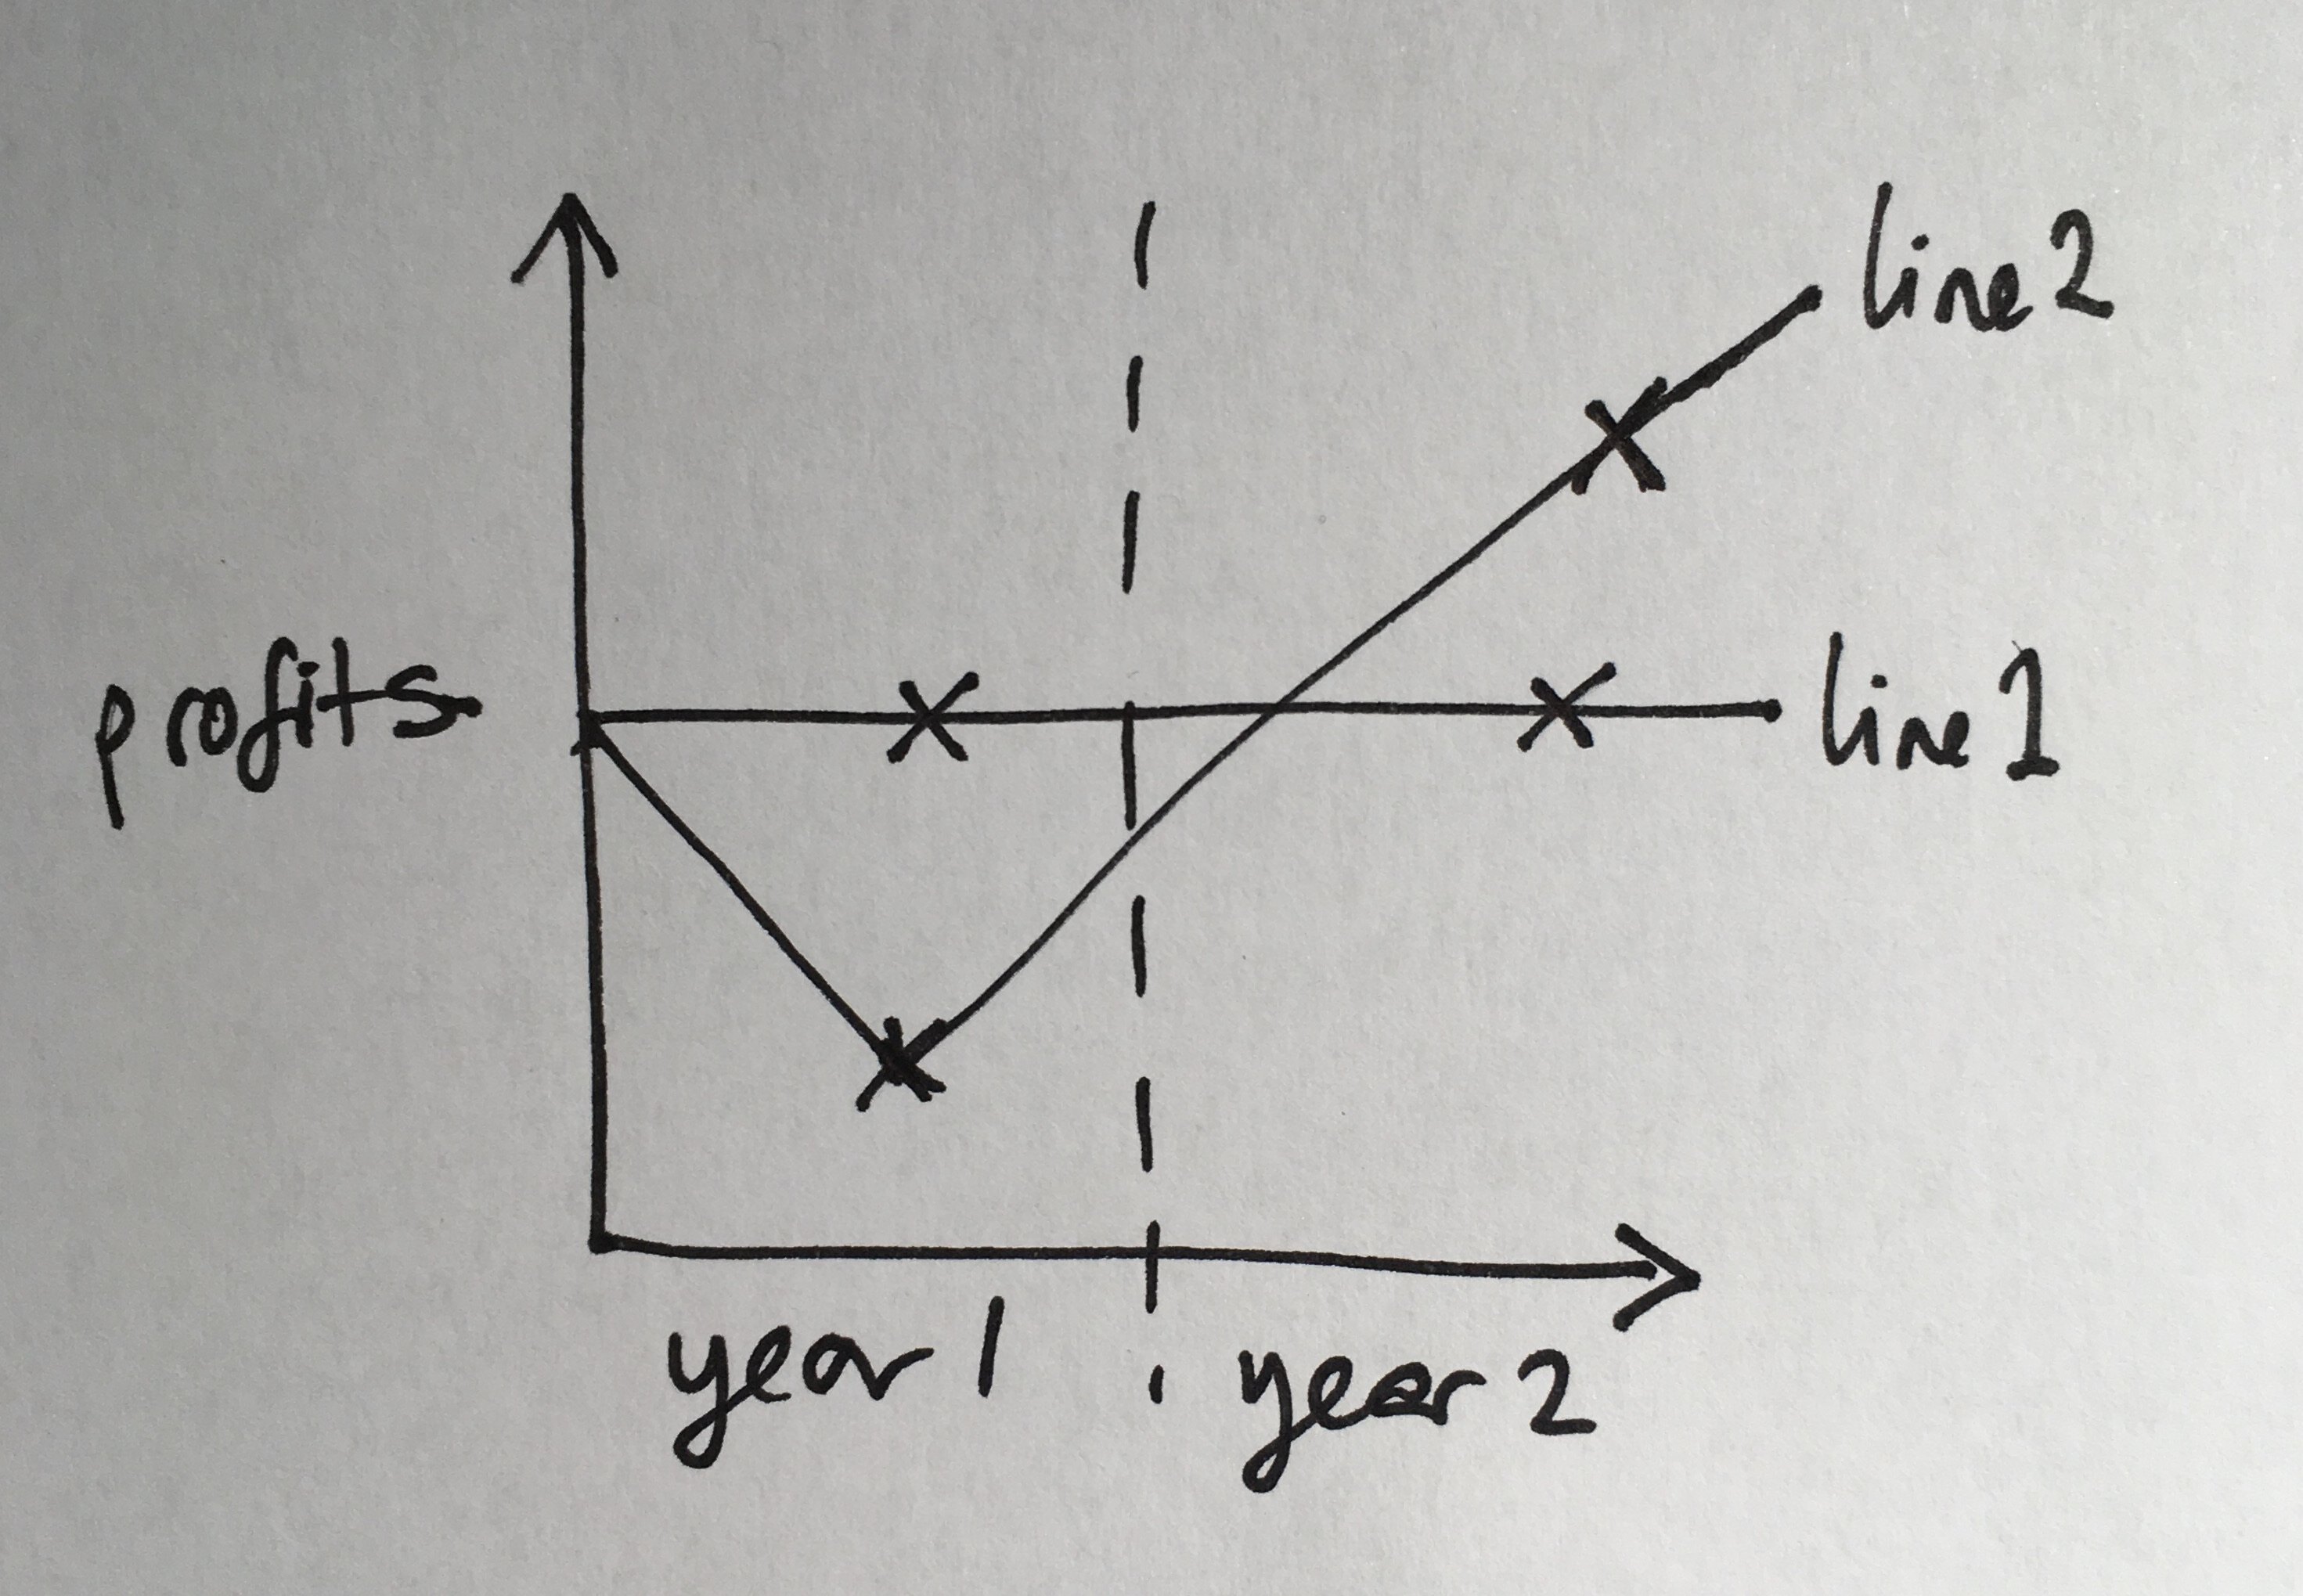 line 2
profits
line 1
year 1
year 2